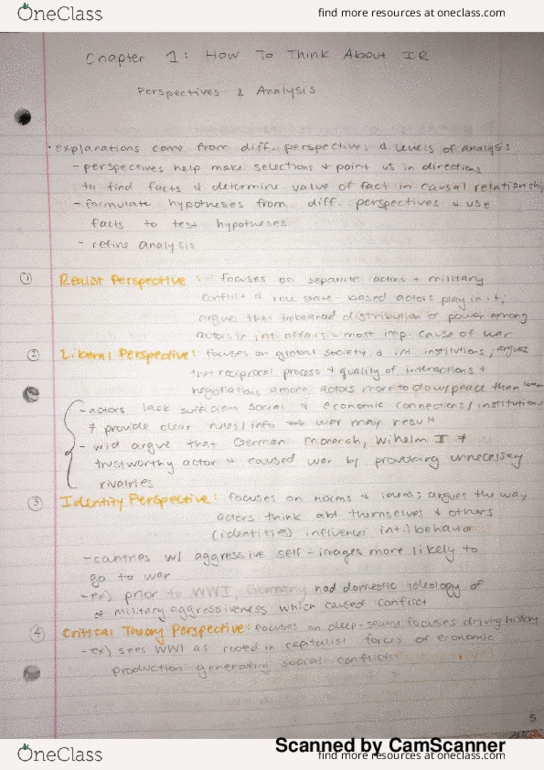 OneClass
find more resources at oneclass.com
Chapter 1: How To Think About IR
Perspectives & Analysis
• explanations come from diff. perspectives & levels of analysis
- perspectives help make selections + point us in directions
to find facts & determine value of fact in causal relationship
- formulate hypotheses from diff. perspectives & use
facts to test hypotheses
- refine analysis
① Realist Perspective : focuses on separate actors + military
conflict & role state-based actors play in it;
argues that imbalanced distribution of power among
actors in int. affairs = most imp. cause of war
② Liberal Perspective: focuses on global society & int. institutions, argues
that reciprocal process + quality of interactions +
negotiations among actors more to do w/ peace than
- actors lack sufficient social & economic connections/institutions
≠ provide clear rules/info → war may result
- wld argue that German Monarch, Wihelm I ≠
trustworthy actor & caused war by provoking unnecessary
rivalries
③ Identity Perspective: focuses on norms & ideas; argues the way
actors think abt themselves & others
(identities) influences int'l behavior
- countries w/ aggressive self-images more likely to
go to war
- ex) prior to WWI, Germany had domestic ideology of
military aggressiveness which caused conflict
④ Critical Theory Perspective: focuses on deep-seated focuses driving history
- ex) sees WWI as rooted in capitalist forces of economic
production generating social conflicts
5
Scanned by CamScanner
OneClass
find more resources at oneclass.com